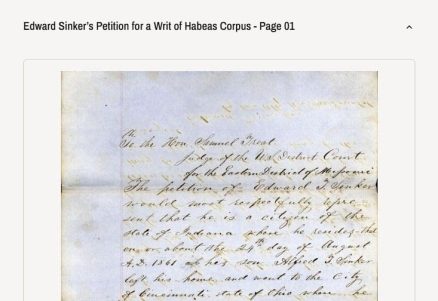 Edward Sinker's Petition for a Writ of Habeas Corpus - Page 01
To the Hon. Samuel Treat
Judge of the U.S. District Court
for the Eastern District of Missouri
The petition of Edward T. Sinker
would most respectfully repre-
sent that he is a citizen of the
state of Indiana where he resides, that
on or about the 24th day of August
A.D. 1861 his son Alfred T. Sinker
left his home and went to the City
of Cincinnati state of Ohio where he